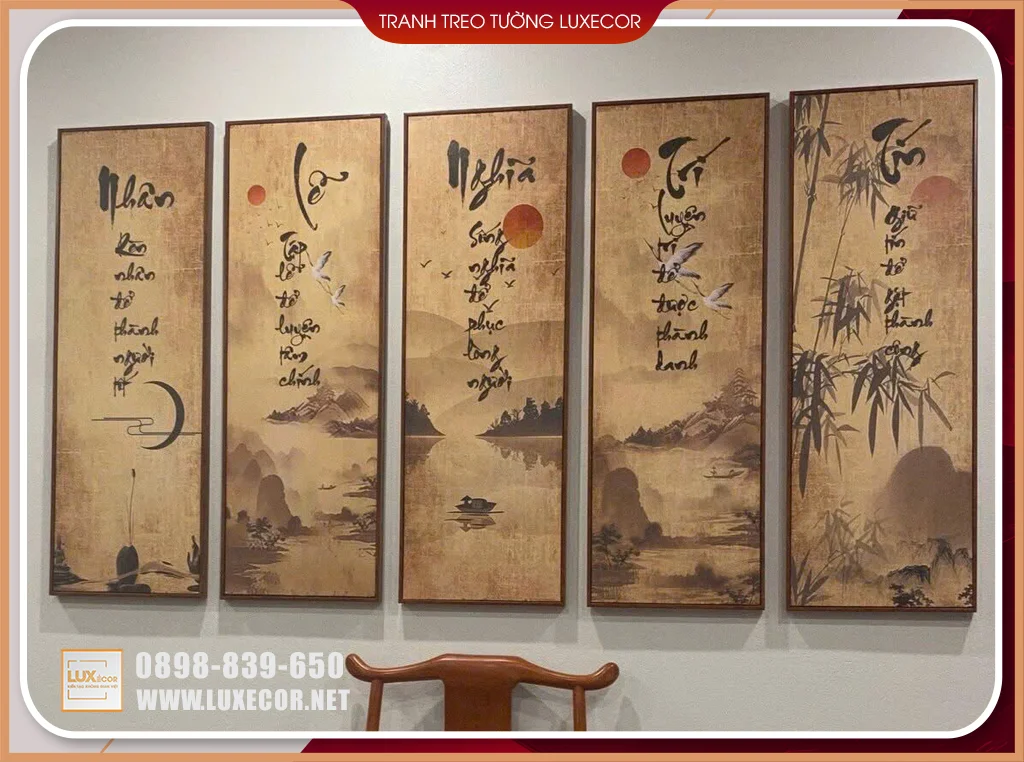 TRANH TREO TƯỜNG LUXECOR
Nhân
Rèn
nhân
để
thành
người
tt
Lễ
Tập
lễ
để
luyện
tâm
chính
Nghĩa
Sống
nghĩa
để
phục
lòng
người
Trí
Luyện
trí
để
được
thành
danh
Tín
Giữ
tín
để
kết
thành
công
LUXECOR
0898-839-650
WWW.LUXECOR.NET